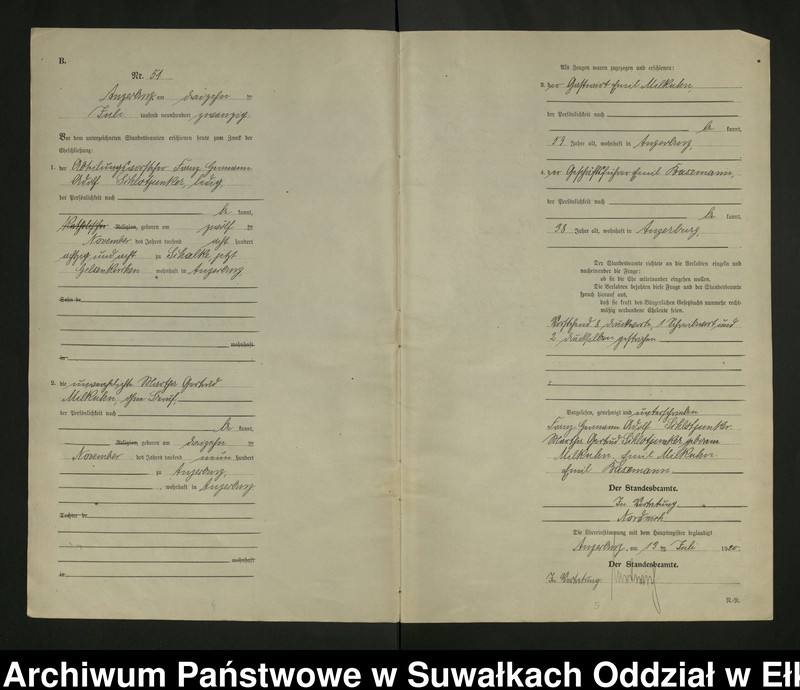 B.
Nr. 51
Angerburg am dreizehn ten
Juli tausend neunhundert zwanzig
Vor dem unterzeichneten Standesbeamten erschienen heute zum Zweck der
Eheschließung:
1. der Abteilungsvorsteher Franz Hermann
Adolf ledig,
der Persönlichkeit nach
be kannt,
Katholischer Religion, geboren am zwölf ten
November des Jahres tausend acht hundert
achtzig und acht zu Schalke jetzt
Gelsenkirchen wohnhaft in Angerburg
Sohn de
wohnhaft
in
2. die unverehelichte Martha Gertrud
Milkuhn, ohne Beruf,
der Persönlichkeit nach
be kannt,
Religion, geboren am dreizehn ten
November des Jahres tausend neun hundert
zu Angerburg,
, wohnhaft in Angerburg
Tochter de
wohnhaft
in
Als Zeugen waren zugezogen und erschienen:
3. der Gastwirt Emil Milkuhn,
der Persönlichkeit nach
be kannt,
59 Jahre alt, wohnhaft in Angerburg,
4. der Geschäftsführer Emil
der Persönlichkeit nach
be kannt,
38 Jahre alt, wohnhaft in Angerburg,
Der Standesbeamte richtete an die Verlobten einzeln und
nacheinander die Frage:
ob sie die Ehe miteinander eingehen wollen.
Die Verlobten bejahten diese Frage und der Standesbeamte
sprach hierauf aus,
daß sie kraft des Bürgerlichen Gesetzbuchs nunmehr recht-
mäßig verbundene Eheleute seien.
Vorstehend 8 Druckworte, 1 Schreibwort und
2 Drucksilben gestrichen
Vorgelesen, genehmigt und unterschrieben
Franz Hermann Adolf
Martha Gertrud geborene
Milkuhn. Emil Milkuhn
Emil
Der Standesbeamte.
In Vertretung
Die Übereinstimmung mit dem Hauptregister beglaubigt
Angerburg, am 13 ten Juli 1920.
Der Standesbeamte.
In Vertretung
R.-R.
Archiwum Państwowe w Suwałkach Oddział w Ełk